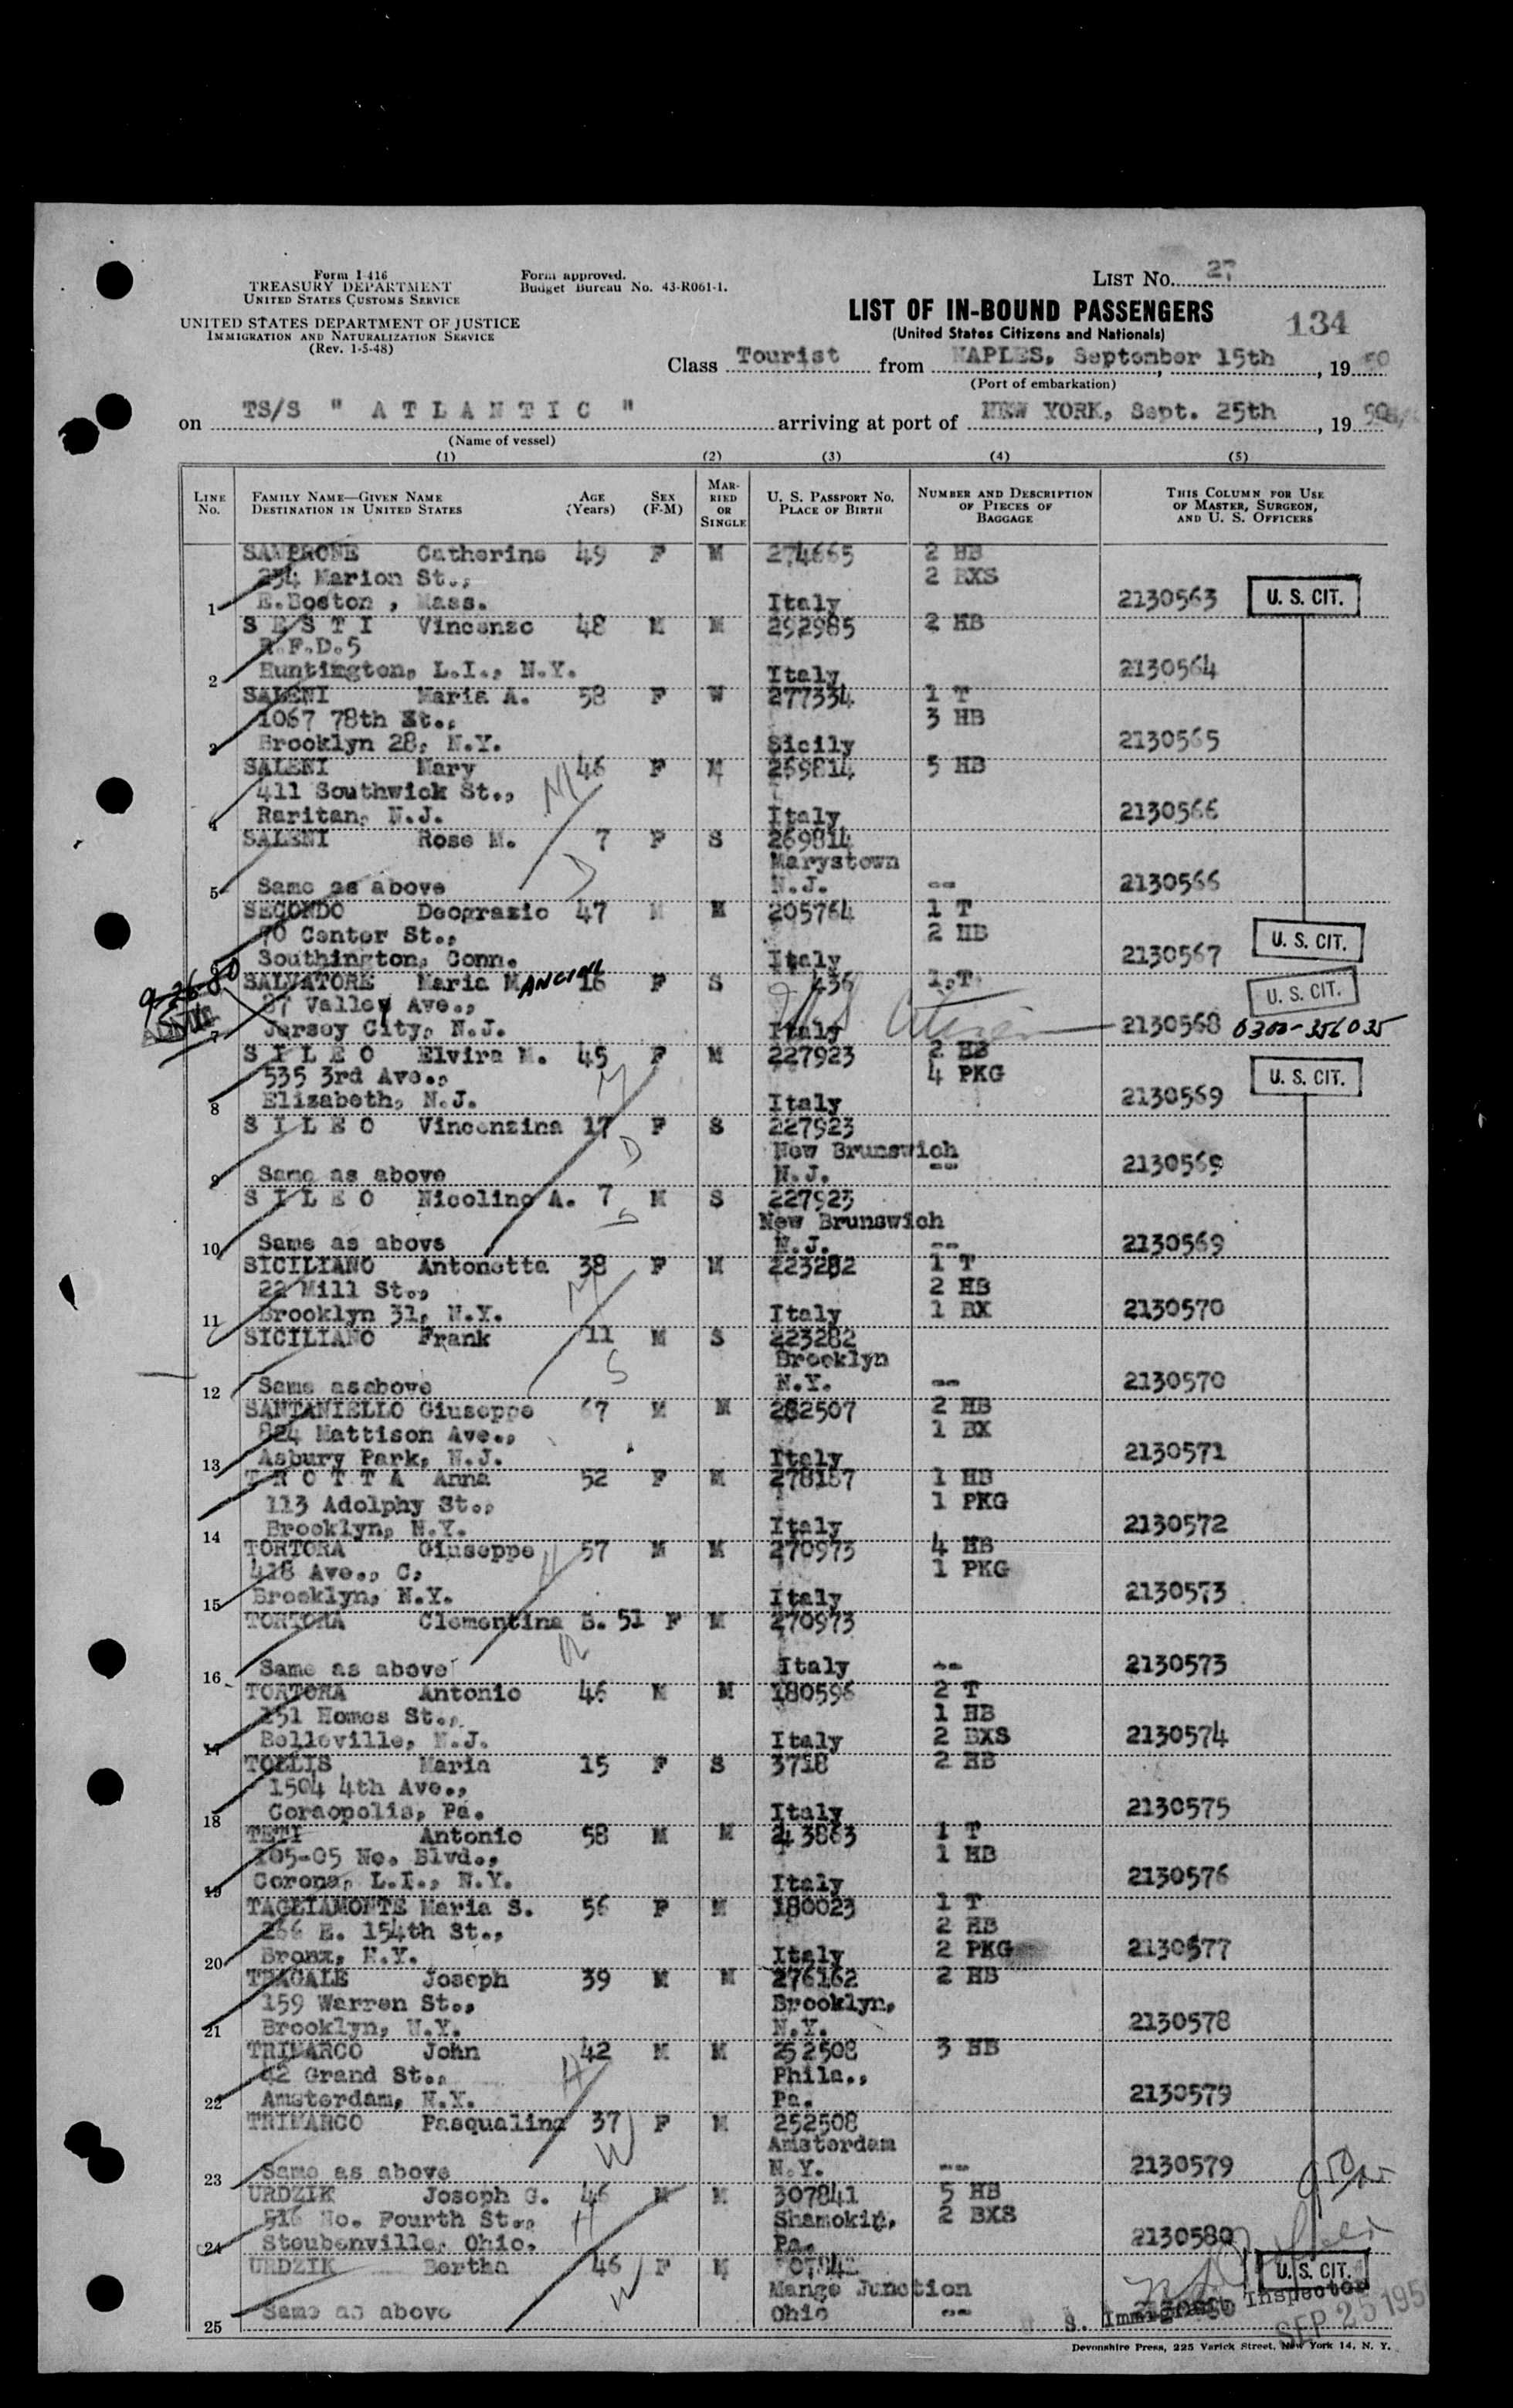 Form I-416
TREASURY DEPARTMENT
UNITED STATES CUSTOMS SERVICE
UNITED STATES DEPARTMENT OF JUSTICE
IMMIGRATION AND NATURALIZATION SERVICE
(Rev. 1-5-48)
Form approved.
Budget Bureau No. 43-R061-1.
LIST No. 27
LIST OF IN-BOUND PASSENGERS
(United States Citizens and Nationals)
134
Class Tourist from NAPLES, September 15th, 1950
(Port of embarkation)
on TS/S " A T L A N T I C " arriving at port of NEW YORK, Sept. 25th, 1950
(Name of vessel)
(1) (2) (3) (4) (5)
LINE No. FAMILY NAME—GIVEN NAME DESTINATION IN UNITED STATES AGE (Years) SEX (F-M) MARRIED OR SINGLE U. S. PASSPORT No. PLACE OF BIRTH NUMBER AND DESCRIPTION OF PIECES OF BAGGAGE THIS COLUMN FOR USE OF MASTER, SURGEON, AND U. S. OFFICERS
Catherine 49 F M 274665 2 HB
234 Marion St., 2 BXS
1 E.Boston , Mass. Italy 2130563 U. S. CIT.
S E S T I Vincenzo 48 M M 292985 2 HB
R.F.D.5
2 Huntington, L.I., N.Y. Italy 2130564
SALENI Maria A. 58 F W 277334 1 T
1067 78th St., 3 HB
3 Brooklyn 28, N.Y. Sicily 2130565
SALENI Mary 46 F M 269814 5 HB
411 Southwick St.,
4 Raritan, N.J. Italy 2130566
SALENI Rose M. 7 F S 269814
Marystown
5 Same as above N.J. -- 2130566
SECONDO Deograzio 47 M M 205764 1 T
70 Center St., 2 HB
6 Southington, Conn. Italy 2130567 U. S. CIT.
SALVATORE Maria MANCINI 16 F S 436 1 T
37 Valley Ave., U. S. CIT.
7 Jersey City, N.J. Italy 2130568 0300-356035
S I L E O Elvira M. 45 F M 227923 2 HB
535 3rd Ave., 4 PKG
8 Elizabeth, N.J. Italy 2130569 U. S. CIT.
S I L E O Vincenzina 17 F S 227923
New Brunswich
9 Same as above N.J. -- 2130569
S I L E O Nicolino A. 7 M S 227923
New Brunswich
10 Same as above N.J. -- 2130569
SICILIANO Antonetta 38 F M 223282 1 T
22 Mill St., 2 HB
11 Brooklyn 31, N.Y. Italy 1 BX 2130570
SICILIANO Frank 11 M S 223282
Brooklyn
12 Same asabove N.Y. -- 2130570
SANTANIELLO Giuseppe 67 M M 282507 2 HB
824 Mattison Ave., 1 BX
13 Asbury Park, N.J. Italy 2130571
T R O T T A Anna 52 F M 278187 1 HB
113 Adolphy St., 1 PKG
14 Brooklyn, N.Y. Italy 2130572
TORTORA Giuseppe 57 M M 270973 4 HB
418 Ave., C, 1 PKG
15 Brooklyn, N.Y. Italy 2130573
TORTORA Clementina S. 51 F M 270973
16 Same as above Italy -- 2130573
TORTORA Antonio 46 M M 180596 2 T
151 Homes St., 1 HB
17 Belleville, N.J. Italy 2 BXS 2130574
TOLLIS Maria 15 F S 3718 2 HB
1504 4th Ave.,
18 Coraopolis, Pa. Italy 2130575
TETI Antonio 58 M M 243863 1 T
105-05 No. Blvd., 1 HB
19 Corona, L.I., N.Y. Italy 2130576
TAGLIAMONTE Maria S. 56 F M 180023 1 T
266 E. 154th St., 2 HB
20 Bronx, N.Y. Italy 2 PKG 2130577
TRAGALE Joseph 39 M M 276162 2 HB
159 Warren St., Brooklyn,
21 Brooklyn, N.Y. N.Y. 2130578
TRIMARCO John 42 M M 252508 3 HB
42 Grand St., Phila.,
22 Amsterdam, N.Y. Pa. 2130579
TRIMARCO Pasqualina 37 F M 252508
Amsterdam
23 Same as above N.Y. -- 2130579
URDZIK Joseph G. 46 M M 307841 5 HB
516 No. Fourth St., Shamokin, 2 BXS
24 Steubenville, Ohio. Pa. 2130580
URDZIK Bertha 46 F M
Mange Junction U. S. CIT.
25 Same as above Ohio -- 2130580
U. S. Immigrant Inspector
SEP 25 195
Devonshire Press, 225 Varick Street, New York 14, N. Y.